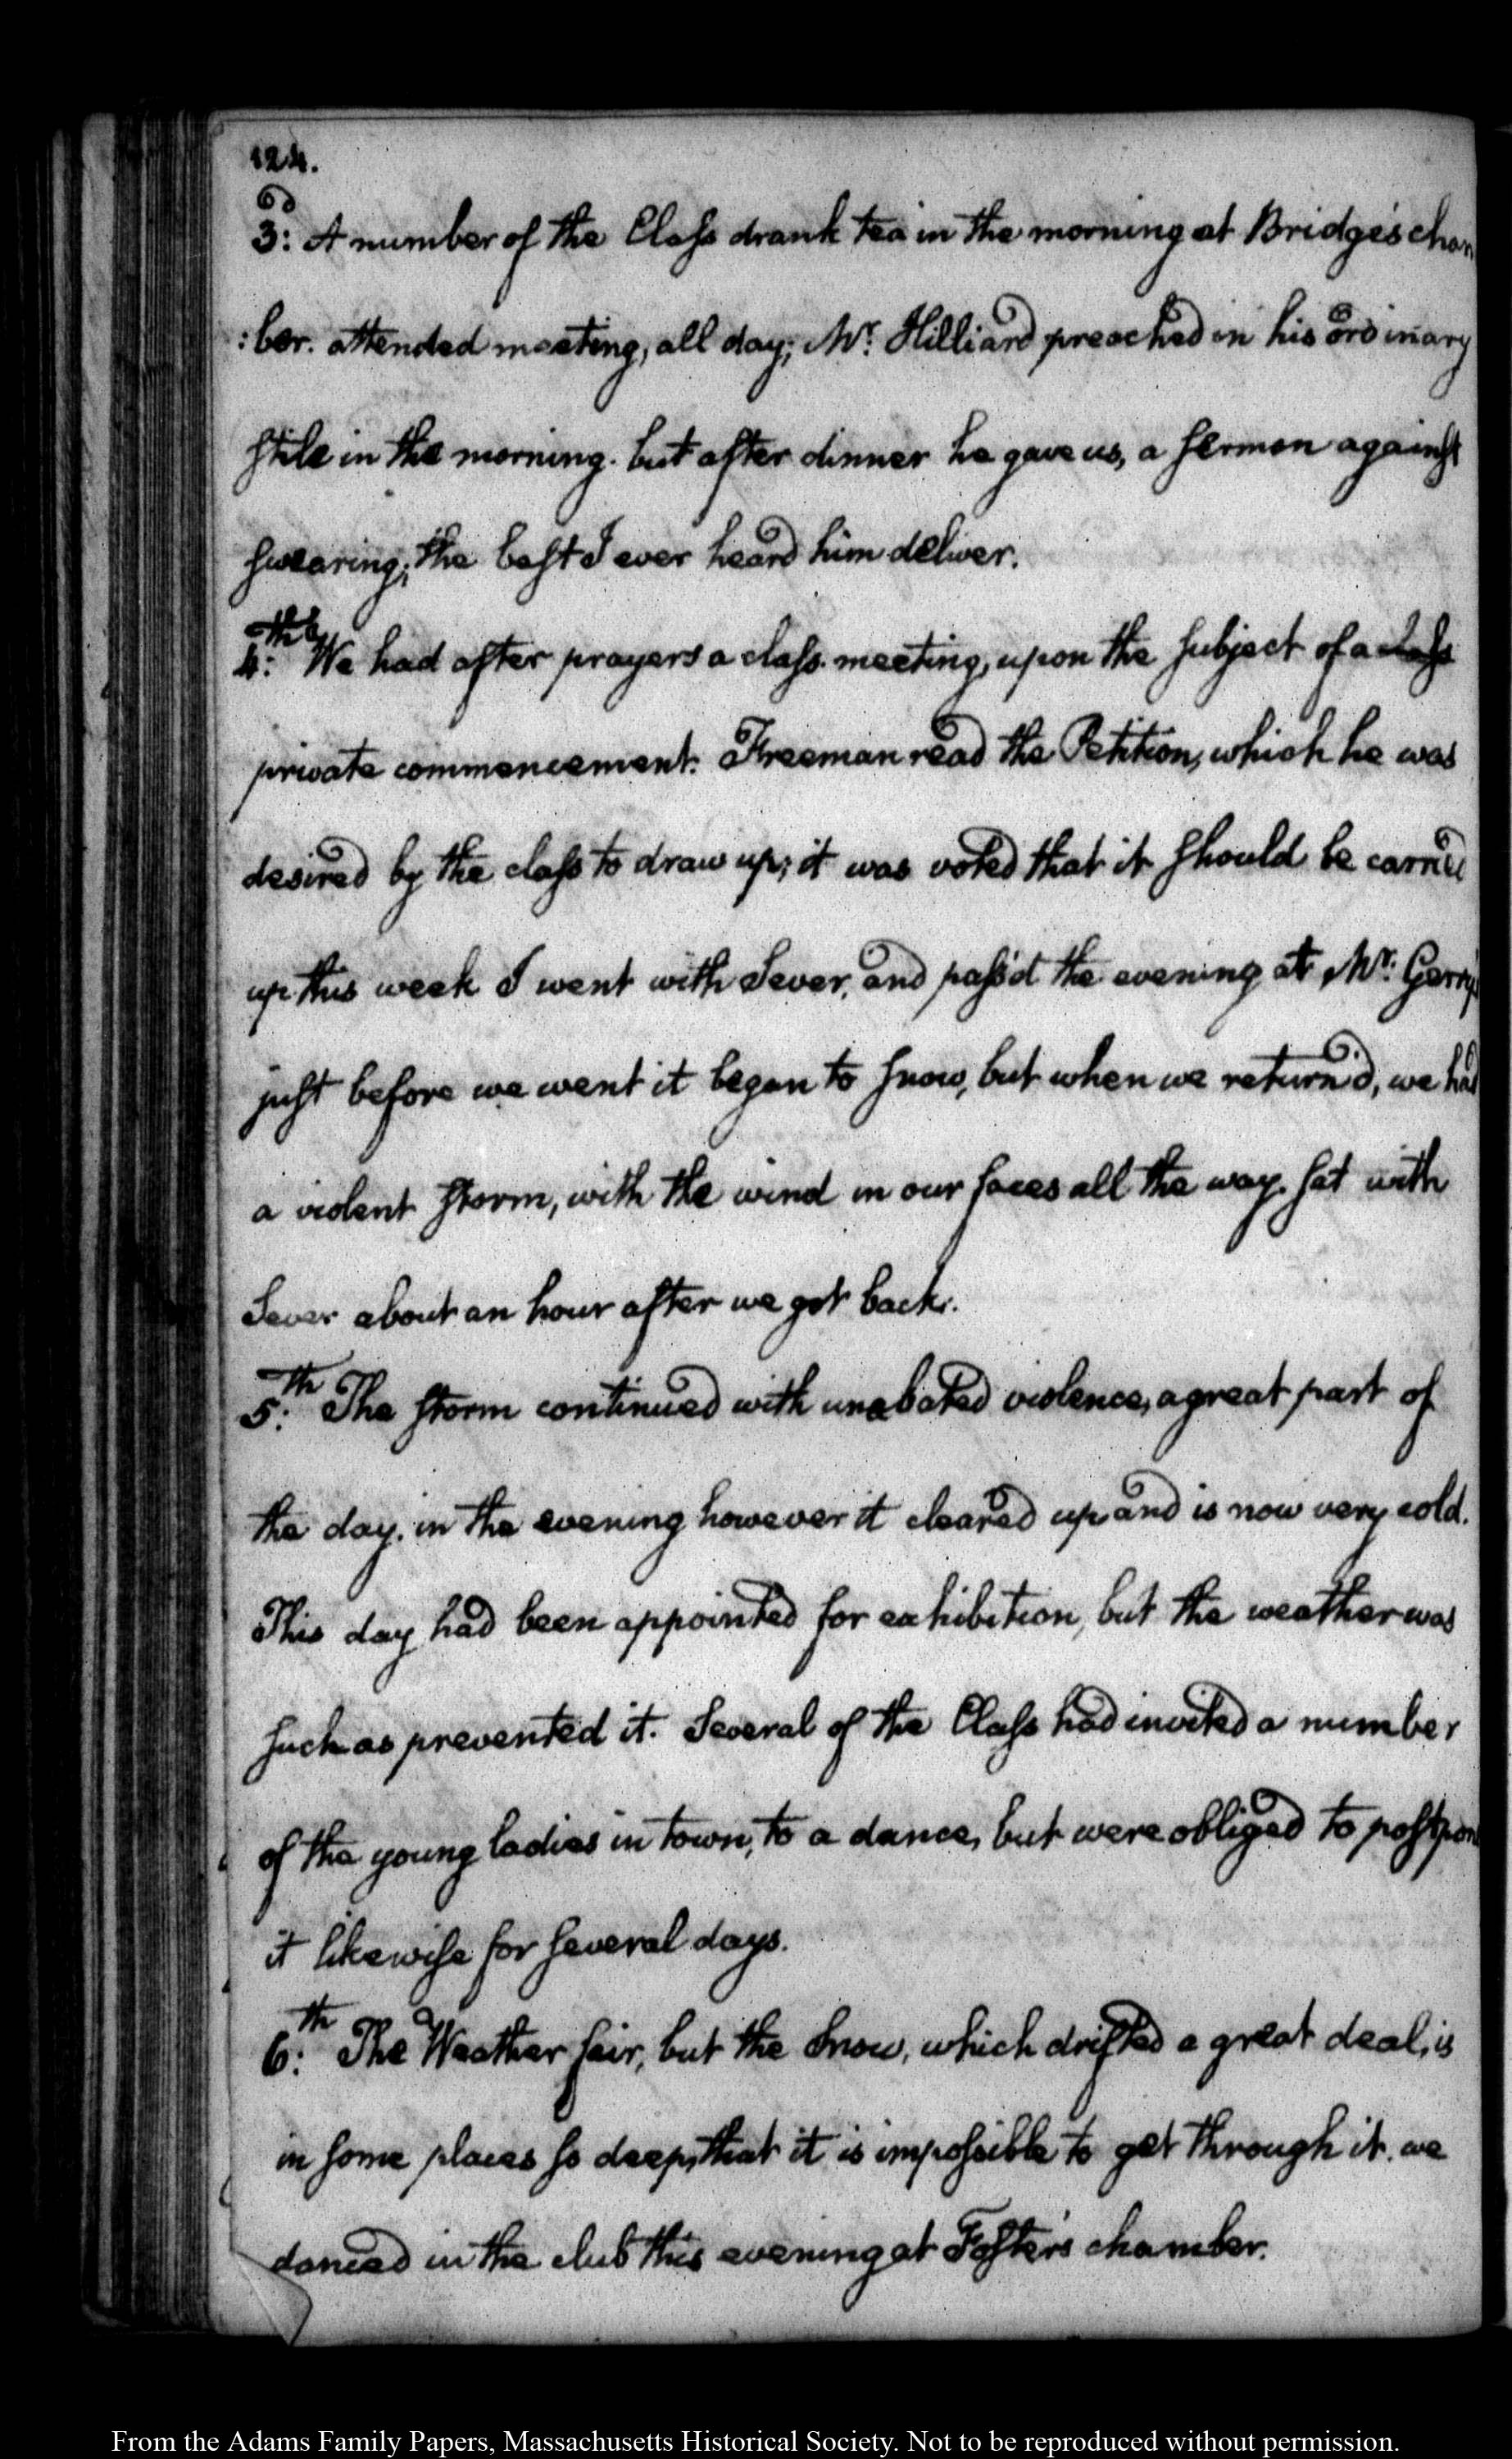 124.
3:d A number of the Class drank tea in the morning at Bridge's cham
:ber. attended meeting, all day; Mr: Hilliard preached in his ordinary
stile in the morning. but after dinner he gave us, a sermon against
swearing; the best I ever heard him deliver.
4:th We had after prayers a class meeting, upon the subject of a class
private commencement. Freeman read the Petition, which he was
desired by the class to draw up; it was voted that it should be carried
up this week I went with Sever, and pass'd the evening at Mr: Gerry's
just before we went it began to snow, but when we return'd, we had
a violent storm, with the wind in our faces all the way. sat with
Sever about an hour after we got back.
5:th The storm continued with unabated violence, a great part of
the day. in the evening however it cleared up and is now very cold.
This day had been appointed for exhibition, but the weather was
such as prevented it. Several of the Class had invited a number
of the young ladies in town, to a dance, but were obliged to postpon
it likewise for several days.
6:th The Weather fair, but the Snow, which drifted a great deal, is
in some places so deep, that it is impossible to get through it. we
danced in the club this evening at Foster's chamber.
From the Adams Family Papers, Massachusetts Historical Society. Not to be reproduced without permission.